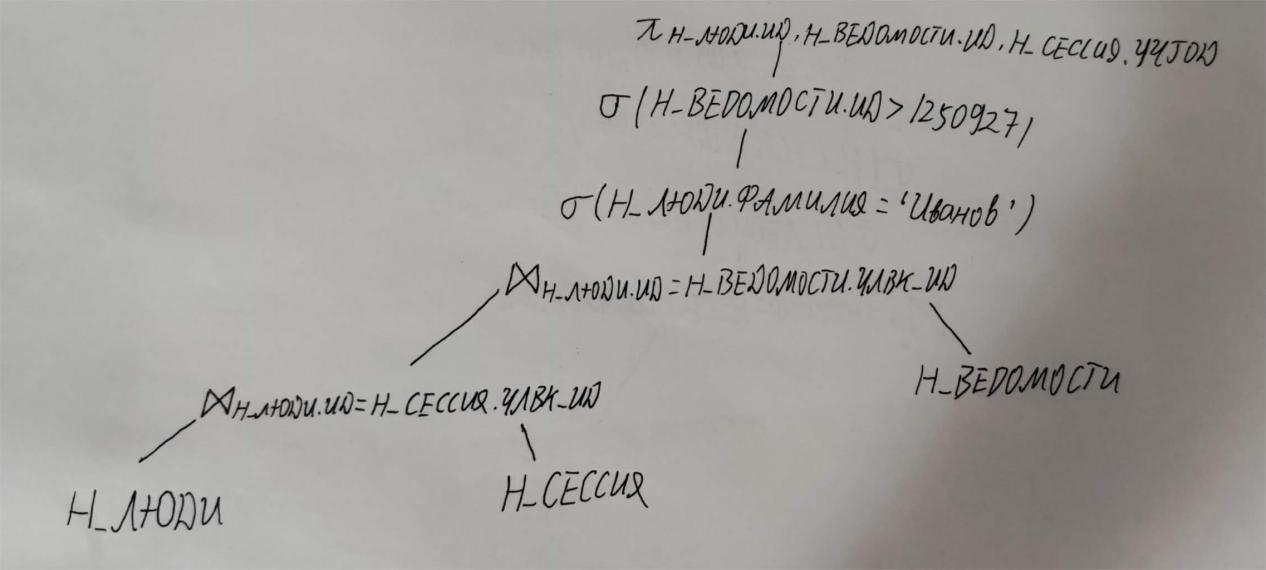 π Н_ЛЮДИ.ИД, Н_ВЕДОМОСТИ.ИД, Н_СЕССИЯ.УЧГОД
σ(Н_ВЕДОМОСТИ.ИД > 1250927)
σ(Н_ЛЮДИ.ФАМИЛИЯ = 'Иванов')
⋈ Н_ЛЮДИ.ИД = Н_ВЕДОМОСТИ.ЧЛВК_ИД
Н_ВЕДОМОСТИ
⋈ Н_ЛЮДИ.ИД = Н_СЕССИЯ.ЧЛВК_ИД
Н_СЕССИЯ
Н_ЛЮДИ